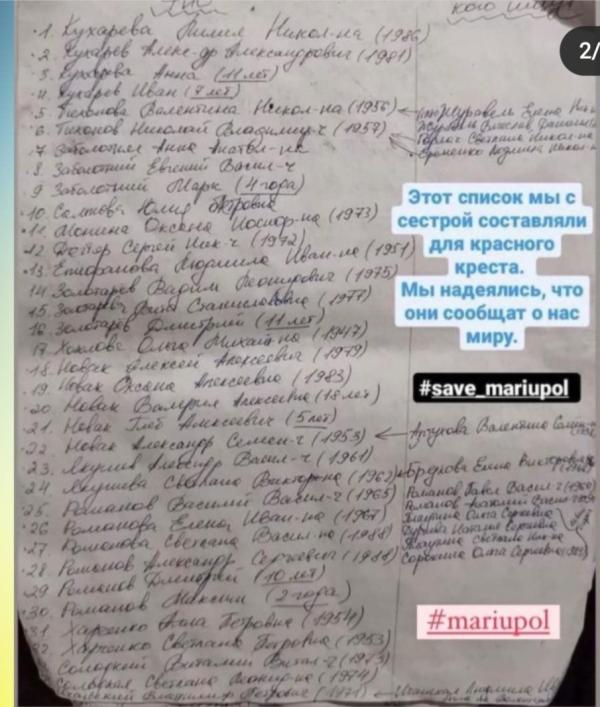 кого ищут
1. Кухарева Лилия Никол-на (1986)
2. Кухарев Алек-др Александрович (1981)
3. Кухарева Анна (11 лет)
4. Кухарев Иван (7 лет)
5. Тихонова Валентина Никол-на (1956)
6. Тихонов Николай Владимир-ч (1957)
7 Заболотняя Анна Анатол-на
8. Заболотний Евгений Васил-ч
9 Заболотний Марк (4 года)
10. Юлия Петровна
11. Монина Оксана Иосиф-на (1973)
12. Сергей Ник-ч (1972)
13. Епифанова Людмила Иван-на (1951)
14. Золотарев Вадим Леонидович (1975)
15. Золотарёва Станиславовна (1977)
16. Золотарев Дмитрий (11 лет)
17. Хохлова Ольга Михайл-на (1947)
18. Новак Алексей Алексеевич (1979)
19. Новак Оксана Алексеевна (1983)
20. Новак Валерия Алексеевна (18 лет)
21. Новак Глеб Алексеевич (5 лет)
22. Новак Александр Семен-ч (1953)
23. Александр Васил-ч (1961)
24. Светлана Викторовна (1962)
25. Романов Василий Васил-ч (1965)
26 Романова Елена Иван-на (1967)
27. Романова Светлана Васил-на (1988)
28. Романов Александр Сергеевич (1988)
29 Романов Дмитрий (10 лет)
30. Романов Максим (2 года)
31. Харченко Анна Петровна (1954)
32. Харченко Светлана Петровна (1953)
Виталий Витал-ч (1973)
Светлана Леонид-на (1974)
Владимир Петрович (1971)
Журавель Елена
Журавель Вячеслав
Светлана Никол-на
Еременко Людмила Никол-на
Артухова Валентина
Елена Викторовна
Романов Павел Васил-ч
Романов Васил-ч
Ольга Сергеевна
Наталья Сергеевна
Светлана Ник-на
Сорокина Ольга Сергеевна
Людмила
2/
Этот список мы с
сестрой составляли
для красного
креста.
Мы надеялись, что
они сообщат о нас
миру.
#save_mariupol
#mariupol